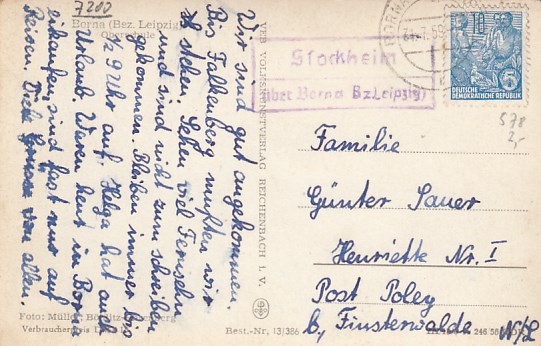 7200
Borna (Bez. Leipzig)
Oberschule
Wir sind gut angekommen.
Bis Falkenberg mußten wir
stehen. Sehen viel Fernsehn
und sind nicht zum schreiben
gekommen. Bleiben immer bis
½ 9 Uhr auf. Helga hat auch
Urlaub. Waren heut in Borna
einkaufen, sind fast nur auf
Reisen. Viele Grüsse von allen.
Foto: Müller
Verbraucherpreis
VEB VOLKSKUNSTVERLAG REICHENBACH I. V.
Best.-Nr. 13/386
Stockheim
über Borna (Bz Leipzig)
10
5
DEUTSCHE
DEMOKRATISCHE REPUBLIK
578
2,-
Familie
Günter Sauer
Henriette Nr. I
Post Poley
b. Finsterwalde N/L